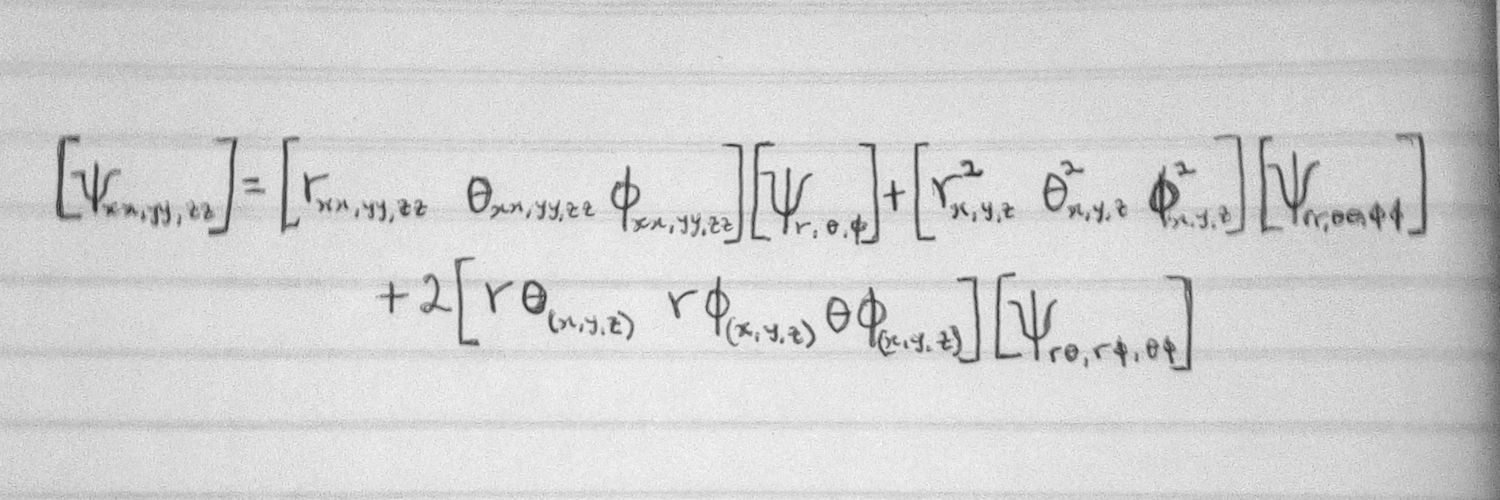 [Ψ_{xx,yy,zz}] = [r_{xx,yy,zz} θ_{xx,yy,zz} ϕ_{xx,yy,zz}][Ψ_{r,θ,ϕ}] + [r²_{x,y,z} θ²_{x,y,z} ϕ²_{x,y,z}][Ψ_{rr,θθ,ϕϕ}]
+ 2[rθ_{(x,y,z)} rϕ_{(x,y,z)} θϕ_{(x,y,z)}][Ψ_{rθ,rϕ,θϕ}]